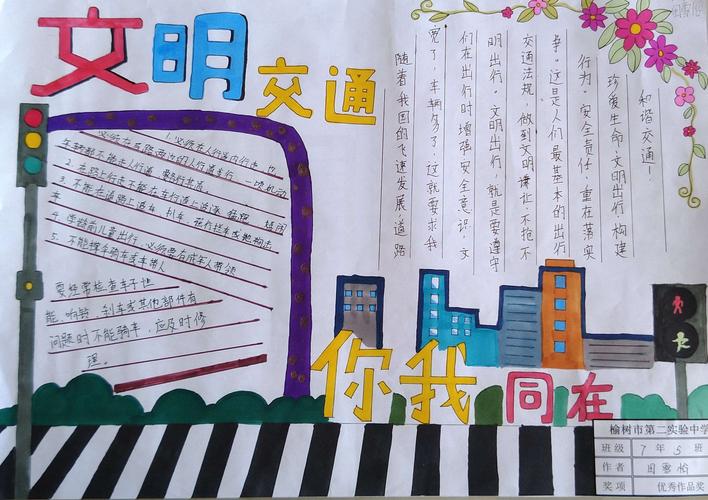 文明
交通
1.必须在人行道内行走，也
2.在路上行走不能在车行道上追逐 猛跑
3.不能在道路上追车、扒车、强行拦车或抛物击
4.学龄前儿童出行，必须要有成年人带领
要经常检查车子性
能，响铃、刹车或其他部件有
问题时不能骑车，应及时修
理。
随着我国的飞速发展，道路
宽了，车辆多了，这就要求我
们在出行时增强安全意识，文
明出行。文明出行，就是要遵守
交通法规，做到文明礼让，不抢不
争。这是人们最基本的出行
行为。安全责任，重在落实
珍爱生命，文明出行 构建
和谐交通！
你我同在
榆树市第二实验中学
班级 7年5班
作者 周雪怡
奖项 优秀作品奖